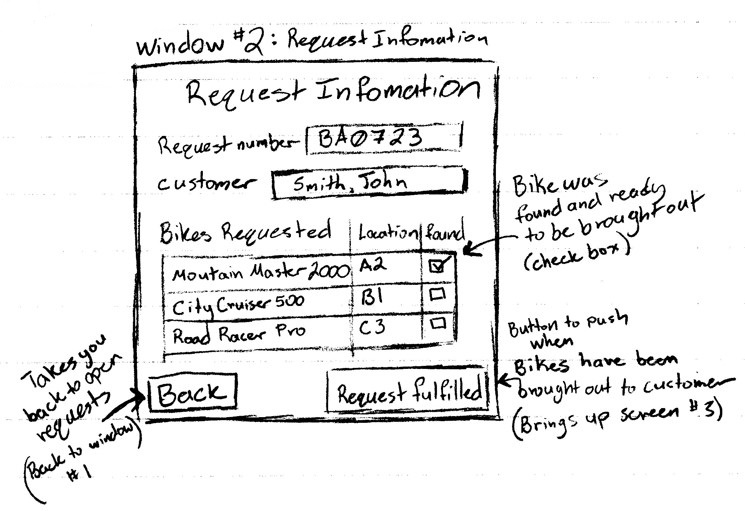 Window #2: Request Infomation
Request Infomation
Request number BA0723
customer Smith, John
Bikes Requested Location found
Moutain Master 2000 A2
City Cruiser 500 B1
Road Racer Pro C3
Back
Request fulfilled
Bike was
found and ready
to be brought out
(check box)
Button to push
when
Bikes have been
brought out to customer
(Brings up screen #3)
Takes you
back to open
requests
(Back to window)
#1